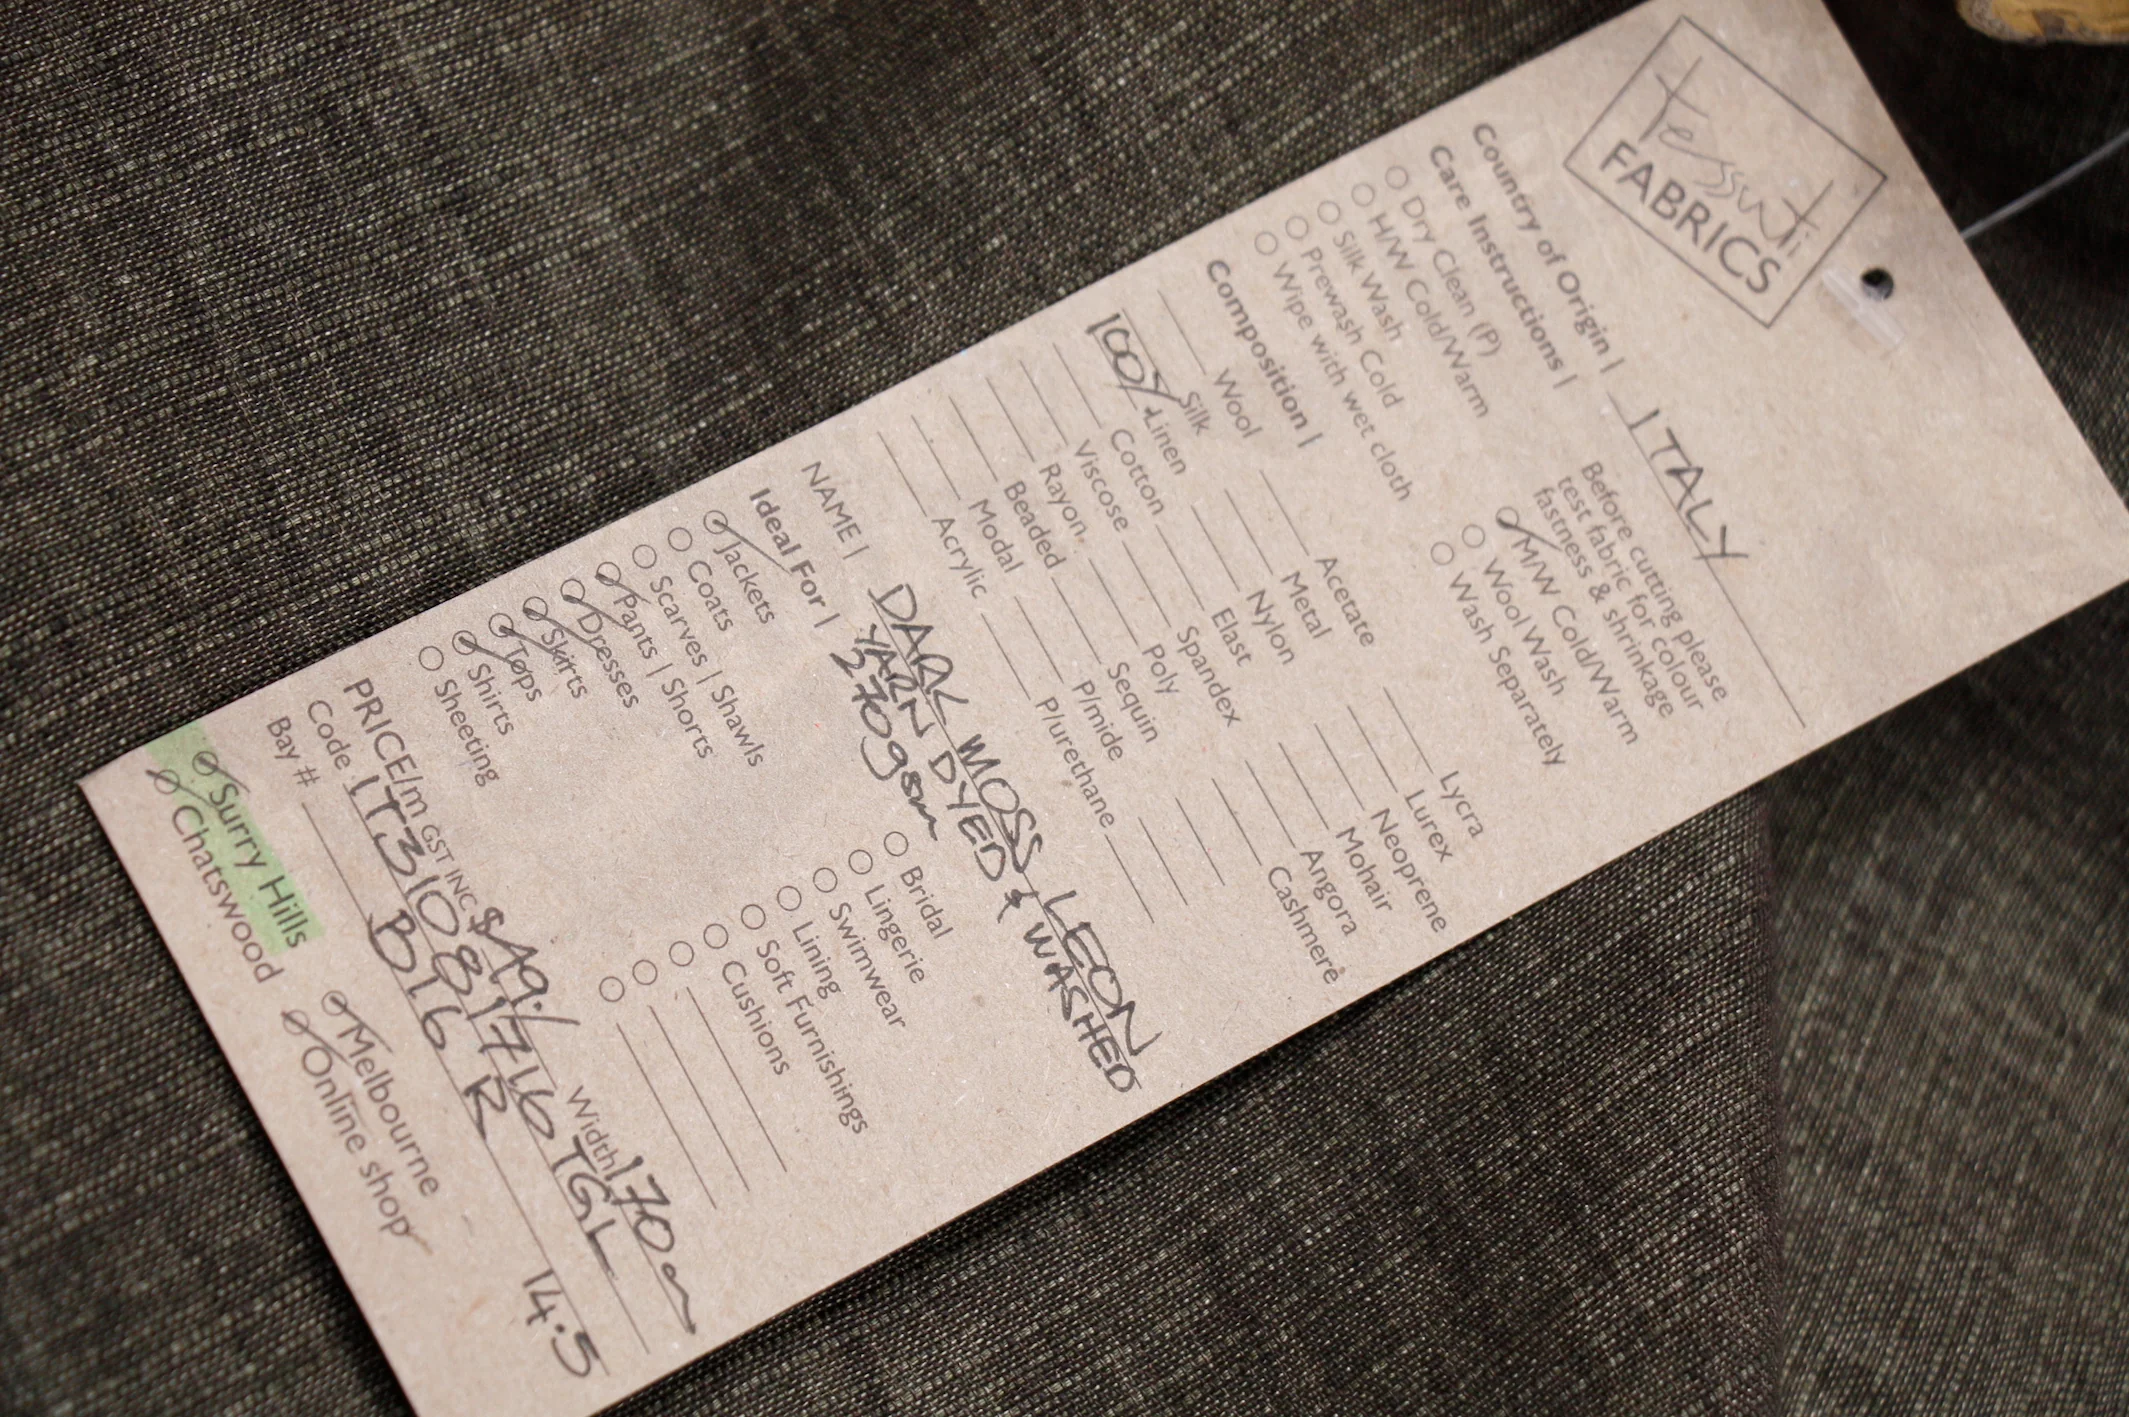 Tessuti
FABRICS
Country of Origin | ITALY
Care Instructions |
Before cutting please
test fabric for colour
fastness & shrinkage
Dry Clean (P)
H/W Cold/Warm
Silk Wash
Prewash Cold
Wipe with wet cloth
M/W Cold/Warm
Wool Wash
Wash Separately
Composition |
Wool
Silk
100% Linen
Cotton
Viscose
Rayon
Beaded
Modal
Acrylic
Acetate
Metal
Nylon
Elast
Spandex
Poly
Sequin
P/mide
P/urethane
Lycra
Lurex
Neoprene
Mohair
Angora
Cashmere
NAME | DARK MOSS LEON
YARN DYED & WASHED
270gsm
Ideal For |
Jackets
Coats
Scarves | Shawls
Pants | Shorts
Dresses
Skirts
Tops
Shirts
Sheeting
Bridal
Lingerie
Swimwear
Lining
Soft Furnishings
Cushions
PRICE/m GST INC $49./ Width 170cm
Code IT31081716 TGL
Bay # B16 R 14.5
Surry Hills
Chatswood
Melbourne
Online shop